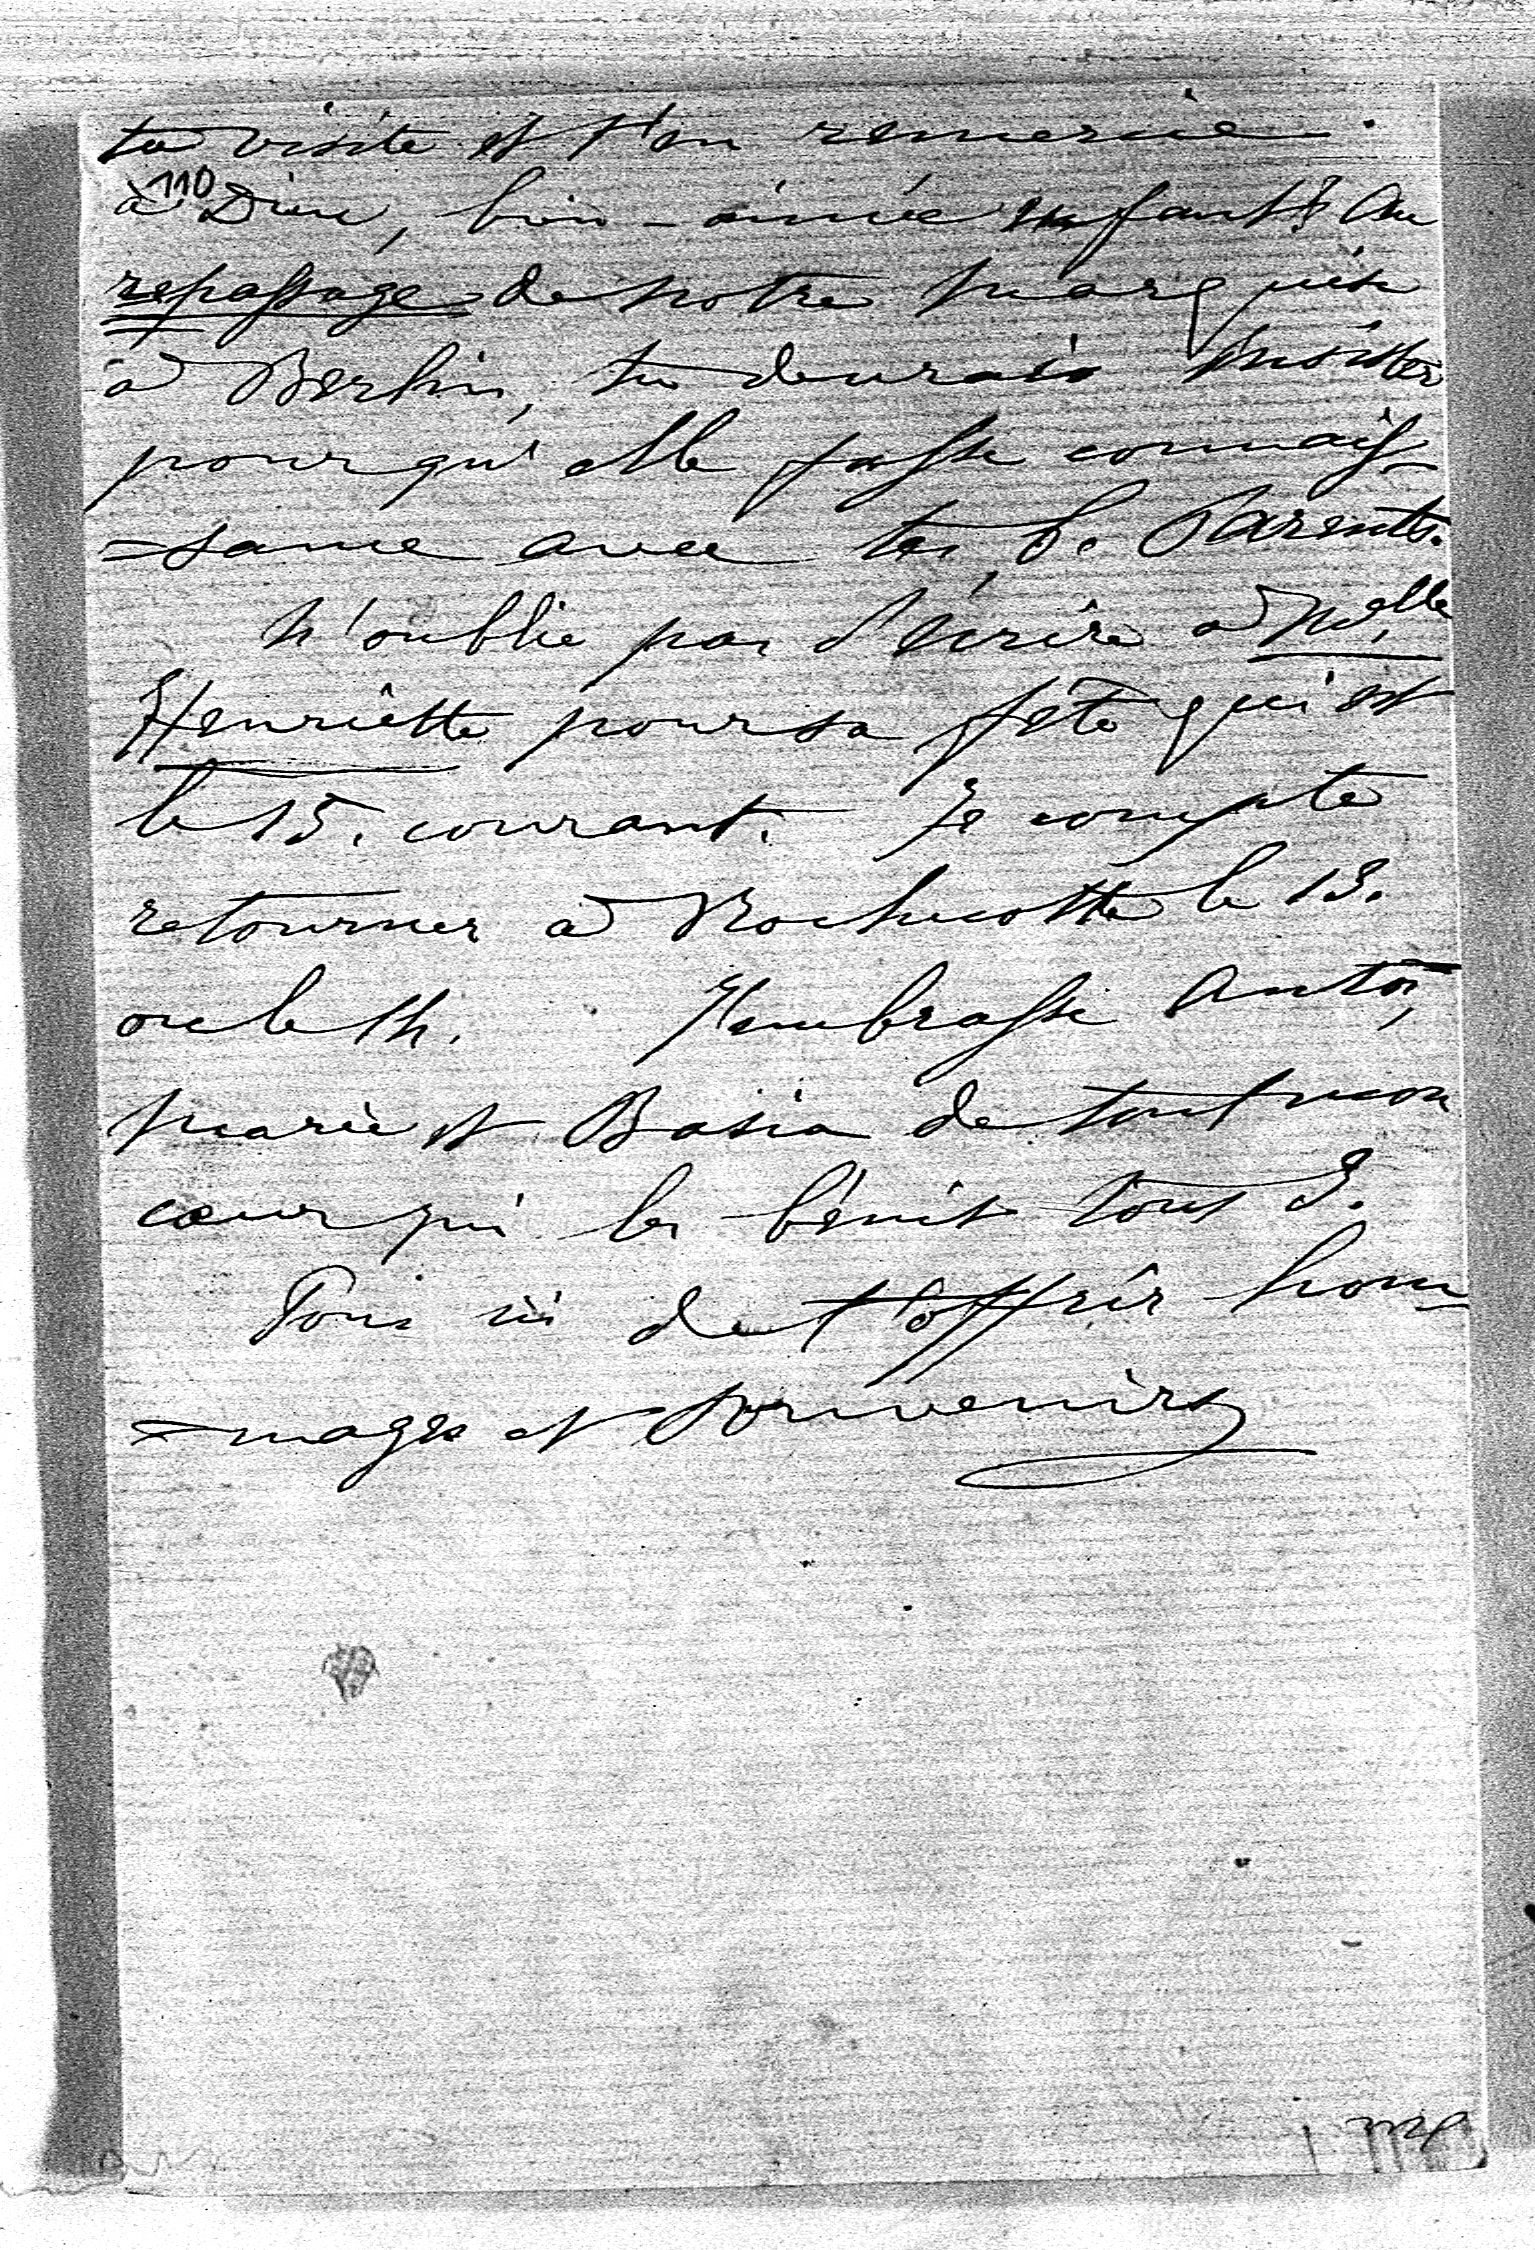 ta visite et t'en remercie.
110
à Dieu, bien-aimée enfant! Au
repassage de notre marquise
à Berlin, tu devrais insister
pourqu'elle fasse connais-
=sance avec tes b. Parents.
N'oublie pas d'écrire à Melle
Henriette pour sa fête qui est
le 15. courant. Je compte
retourner à Rochecotte le 13.
ou le 14. J'embrasse Anton,
Marie et Basia de tout mon
cœur qui les bénit tous 3.
Tous ici de t'offrir hom-
=mages et Souvenirs